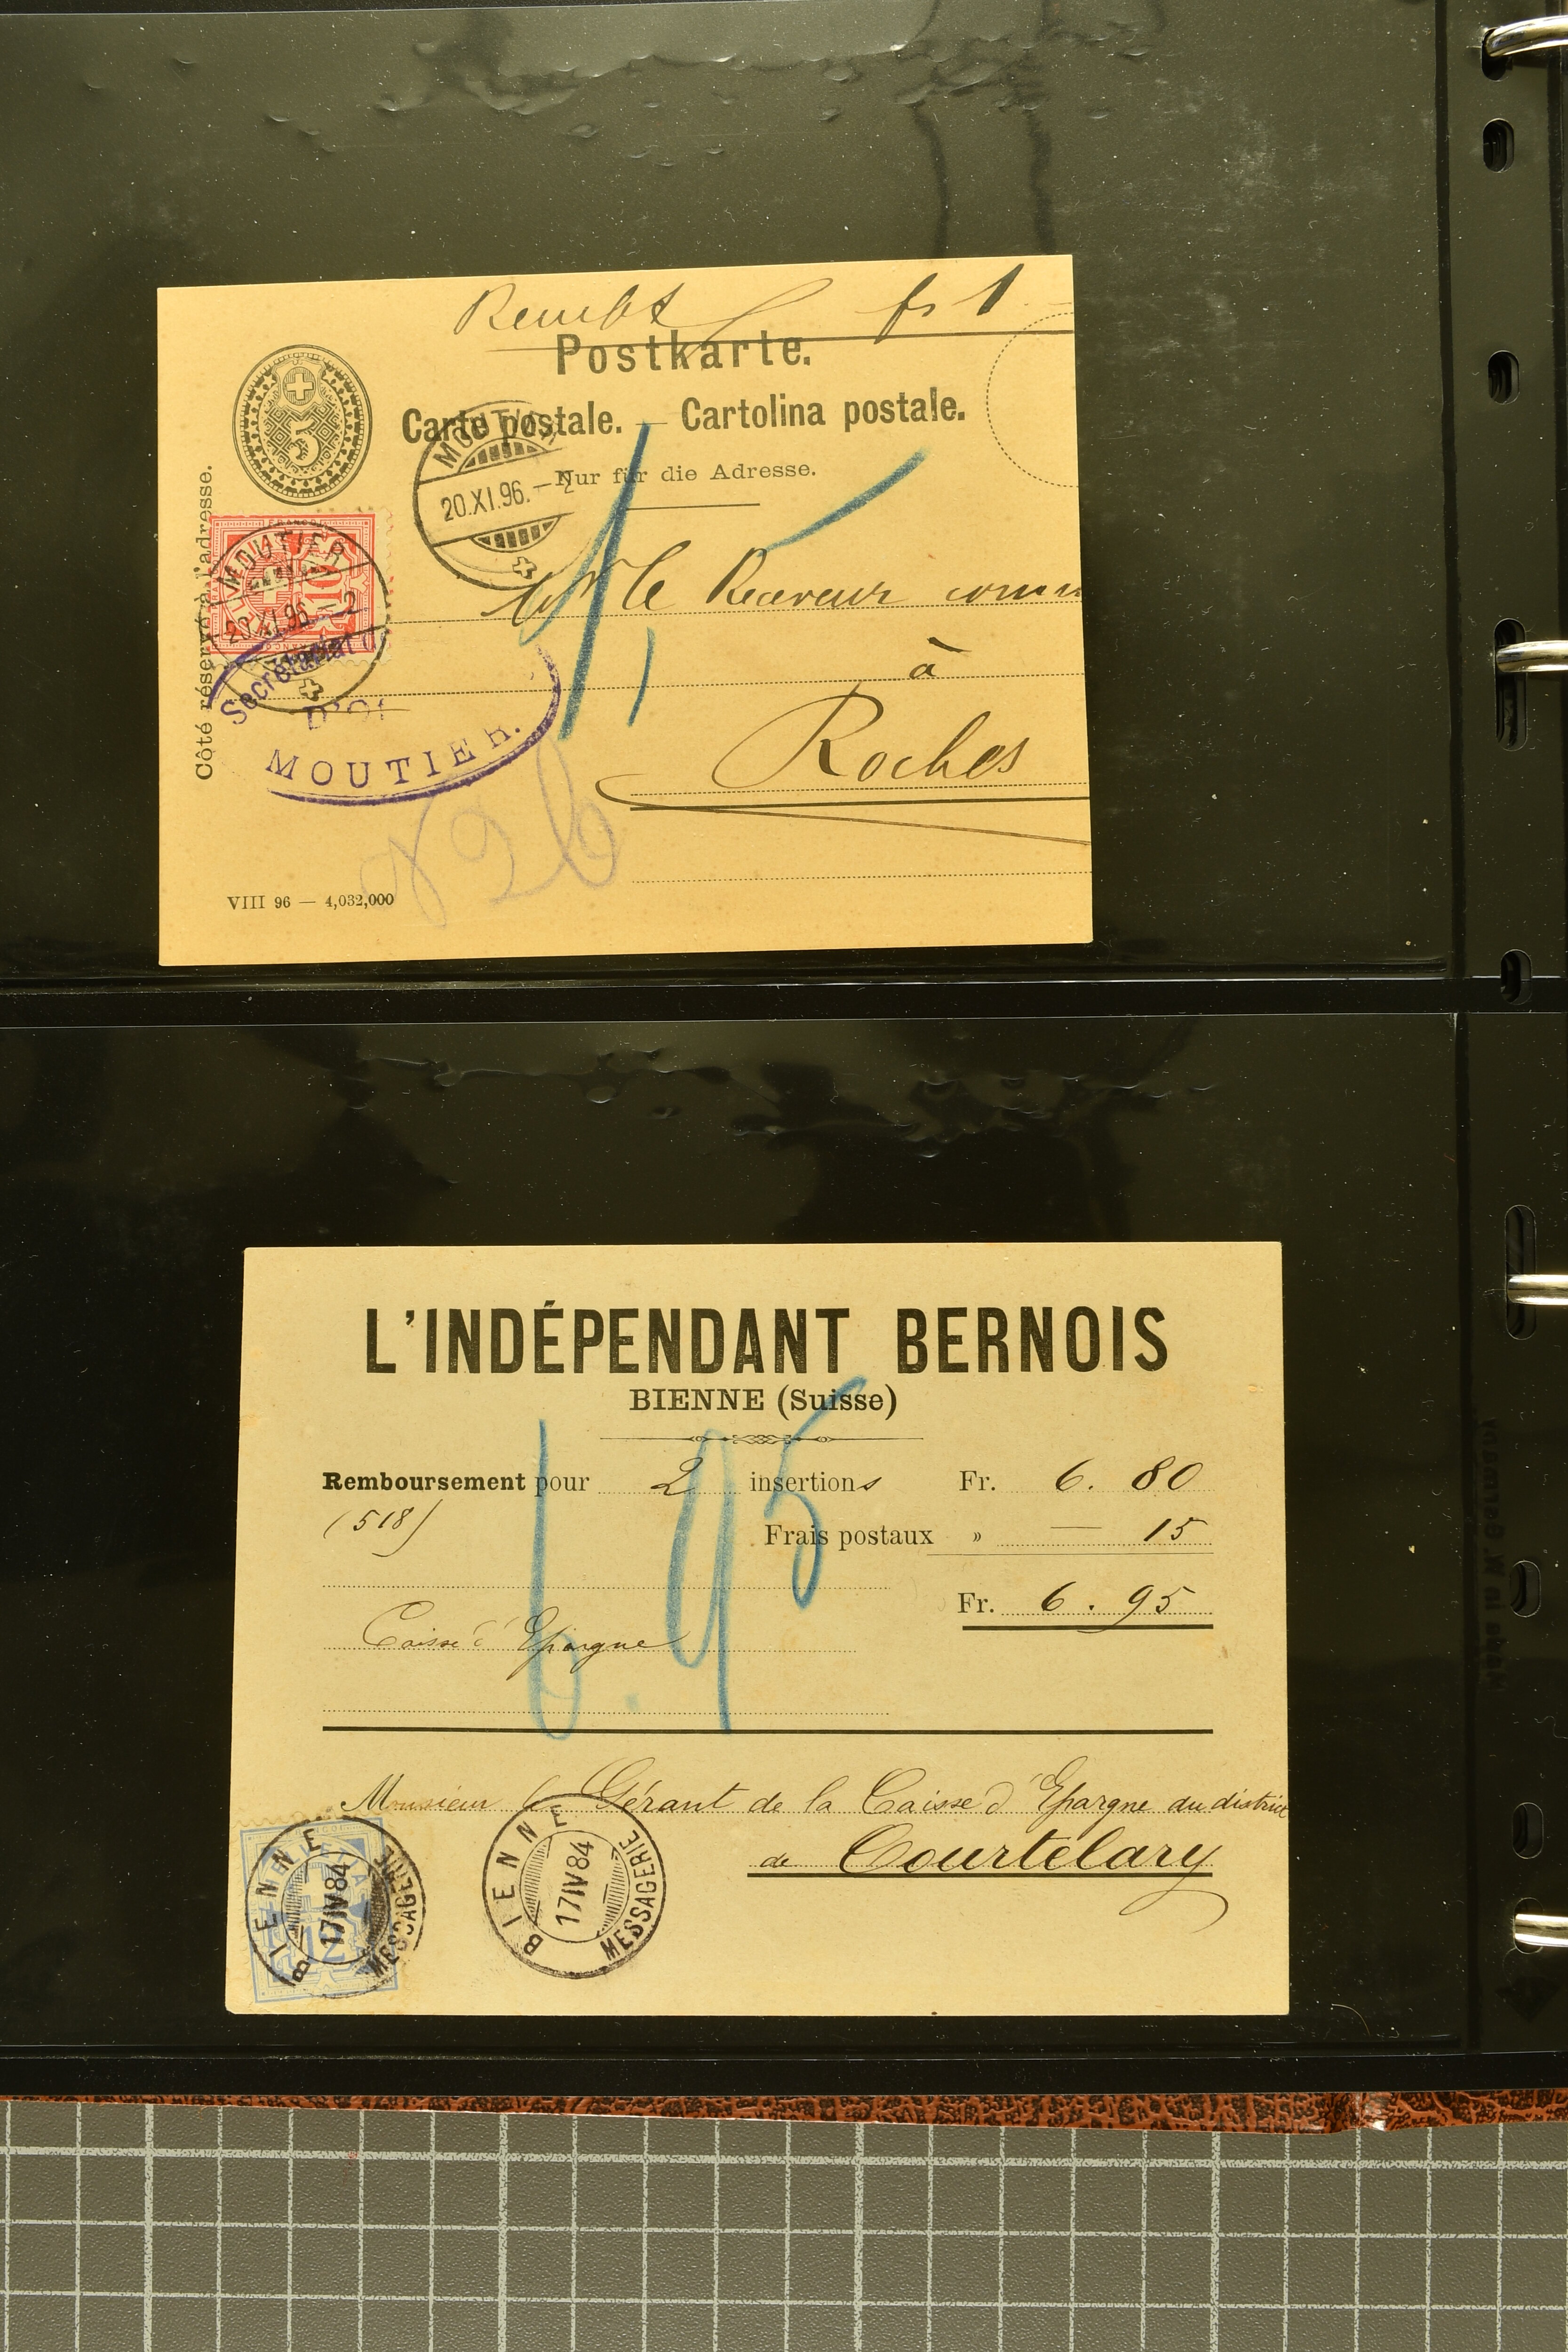 Rembt fr 1.—
Postkarte.
Carte postale. — Cartolina postale.
Nur für die Adresse.
5
Côté réservé à l'adresse.
MOUTIER
20.XI.96.–2
10
MOUTIER
20.XI.96.–2
Mr le Receveur comm
à
Roches
Secrétariat
D'O
MOUTIER.
1,
826
VIII 96 — 4,032,000
L'INDÉPENDANT BERNOIS
BIENNE (Suisse)
Remboursement pour 2 insertions Fr. 6. 80
(518)
Frais postaux » — 15
Fr. 6. 95
6.95
Caisse d'Epargne
Monsieur le Gérant de la Caisse d'Epargne du district
de Courtelary
BIENNE
17 IV 84
MESSAGERIE
12
BIENNE
17 IV 84
MESSAGERIE
Made in W. Germany